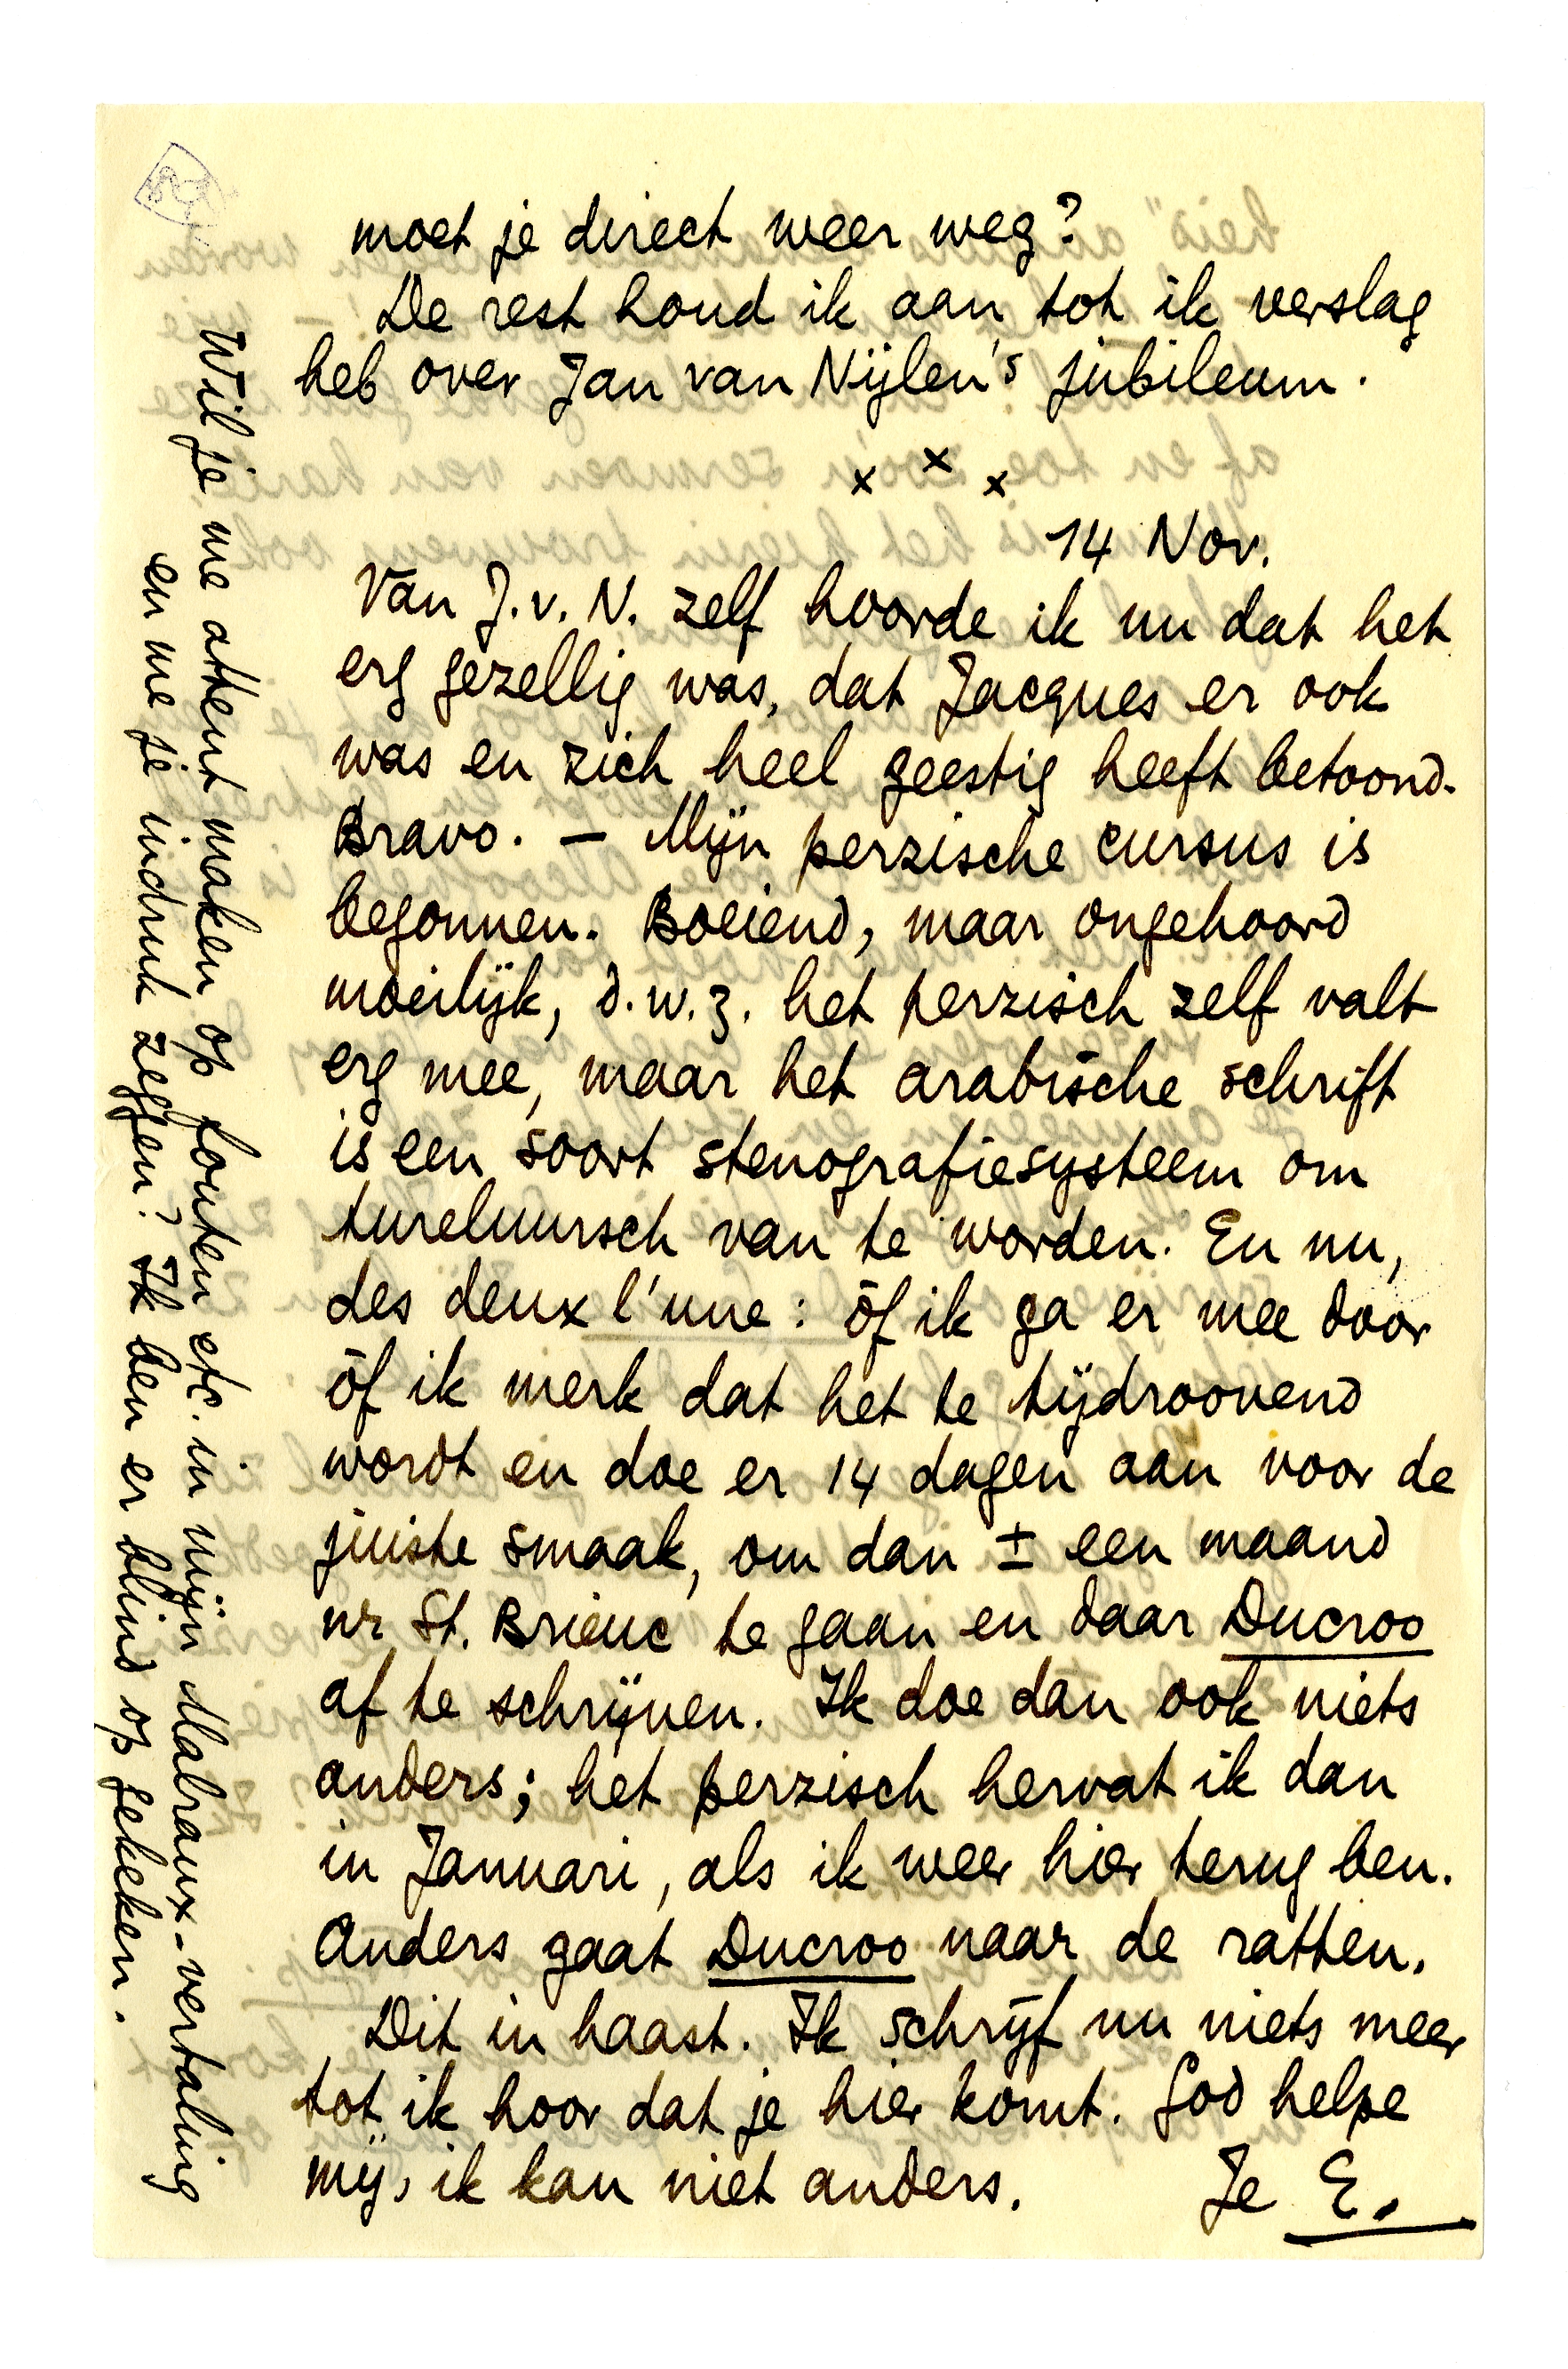 moet je direct weer weg?
De rest houd ik aan tot ik verslag
heb over Jan van Nijlen's jubileum.
x x x
14 Nov.
Van J.v.N. zelf hoorde ik nu dat het
erg gezellig was, dat Jacques er ook
was en zich heel geestig heeft betoond.
Bravo. – Mijn perzische cursus is
begonnen. Boeiend, maar ongehoord
moeilijk, d.w.z. het perzisch zelf valt
erg mee, maar het arabische schrift
is een soort stenografiesysteem om
tureluursch van te worden. En nu,
des deux l'une: óf ik ga er mee door
óf ik merk dat het te tijdroovend
wordt en doe er 14 dagen aan voor de
juiste smaak, om dan ± een maand
nr St. Brieuc te gaan en daar Ducroo
af te schrijven. Ik doe dan ook niets
anders; het perzisch hervat ik dan
in Januari, als ik weer hier terug ben.
Anders gaat Ducroo naar de ratten.
Dit in haast. Ik schrijf nu niets meer
tot ik hoor dat je hier komt. God helpe
mij, ik kan niet anders. Je E.
Wil je me attent maken op fouten etc. in mijn Malraux-vertaling
en me je indruk zeggen? Ik ben er blind op gekeken.